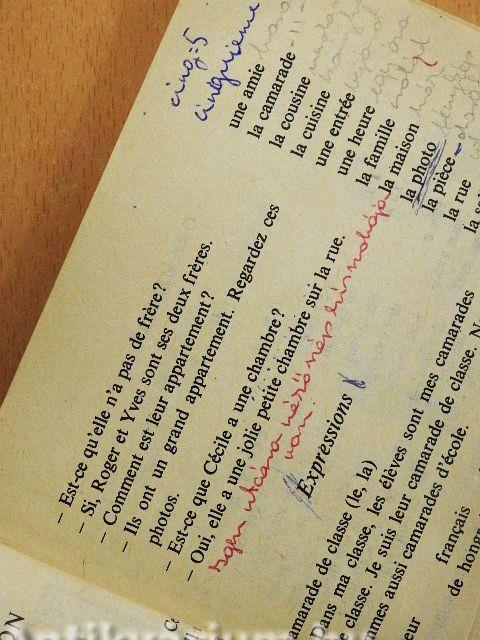 cinq=5
cinquième
une amie
la camarade
la cousine
la cuisine
une entrée
une heure
la famille
la maison
la photo
la pièce
la rue
– Est-ce qu'elle n'a pas de frère?
– Si, Roger et Yves sont ses deux frères.
– Comment est leur appartement?
– Ils ont un grand appartement. Regardez ces
photos.
– Est-ce que Cécile a une chambre?
– Oui, elle a une jolie petite chambre sur la rue.
van.
Expressions
amarade de classe (le, la)
ans ma classe, les élèves sont mes camarades
classe. Je suis leur camarade de classe. N
mes aussi camarades d'école.
français
de hongr
ON